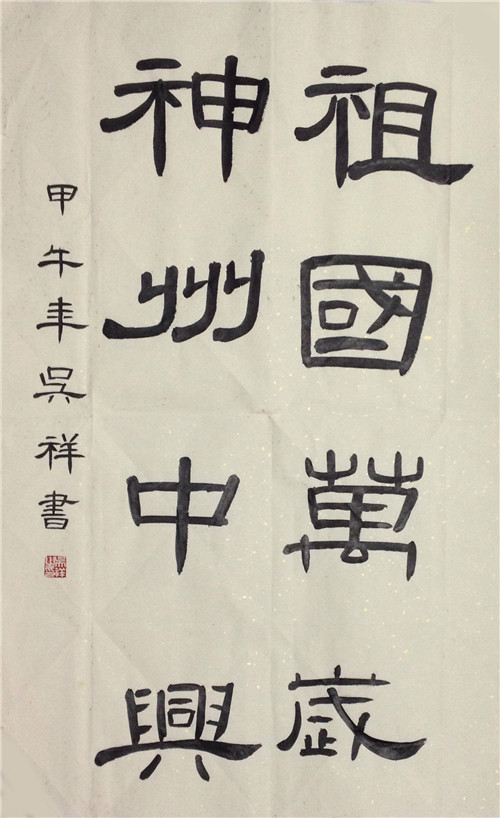 祖國萬歲
神州中興
甲午年吳祥書